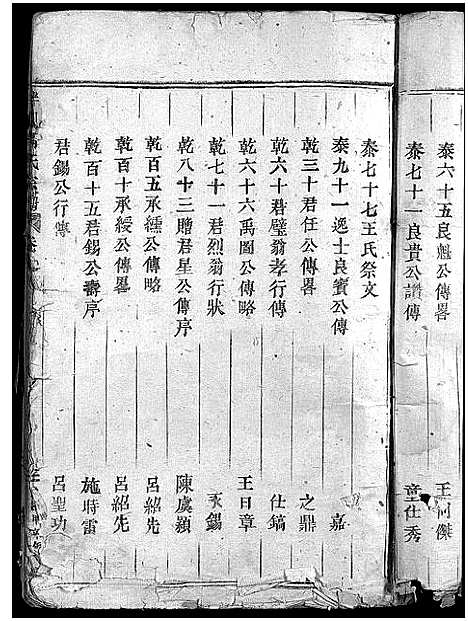 泰六十五良魁公傳畧 王何傑
泰七十一良貴公讚傳 童仕秀
泰七十七王氏祭文
泰九十一逸士良賓公傳 嘉
乾三十君任公傳畧 之鼎
乾六十君璧翁孝行傳 仕鎬
乾六十六禹圖公傳略 王日章
乾七十一君烈翁行狀 永錫
乾八十三贈君星公傳序 陳虞穎
乾百五承繻公傳略 呂紹先
乾百十承綬公傳畧 呂紹先
乾百十五君錫公壽序 施時雷
君錫公行傳 呂聖功